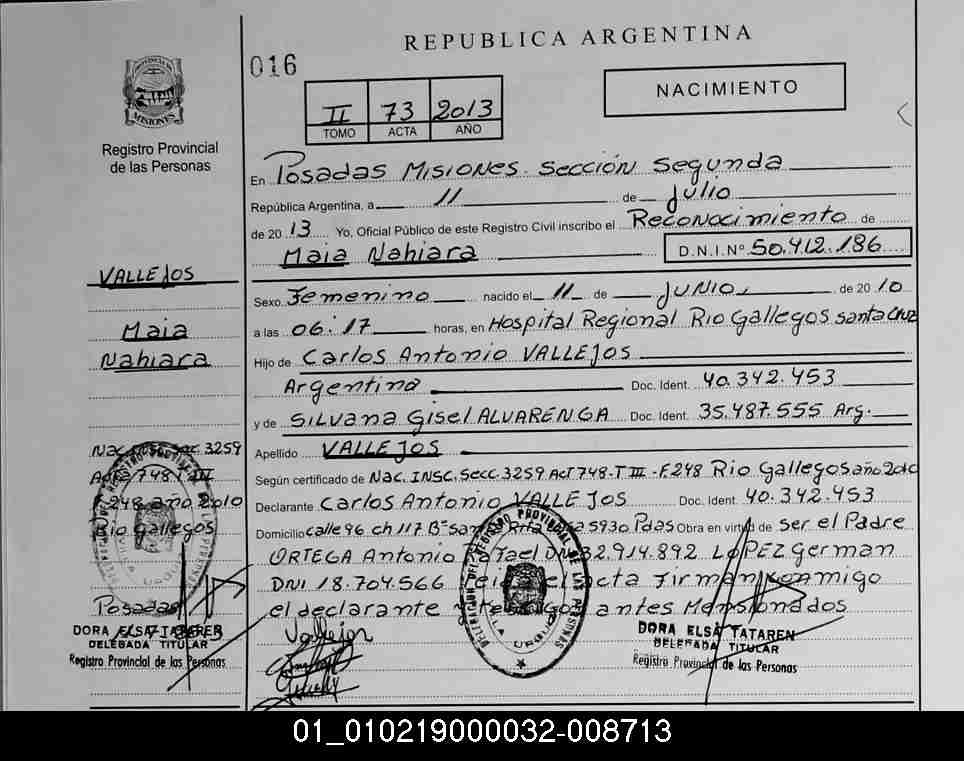 REPUBLICA ARGENTINA
016
NACIMIENTO
II 73 2013
TOMO ACTA AÑO
MISIONES
Registro Provincial
de las Personas
En Posadas Misiones. Sección Segunda
República Argentina, a 11 de Julio
de 20 13 Yo, Oficial Público de este Registro Civil inscribo el Reconocimiento de
Maia Nahiara D.N.I.Nº 50.412.186
VALLEJOS
Maia
Nahiara
Sexo Femenino nacido el 11 de JUNIO, de 20 10
a las 06:17 horas, en Hospital Regional Rio Gallegos santa Cruz
Hijo de Carlos Antonio VALLEJOS
Argentina Doc. Ident. 40.342.453
y de SILVANA GISEL ALVARENGA Doc. Ident. 35.487.555 Arg.
Apellido VALLEJOS
Según certificado de Nac. INSC. Secc. 3259 ACT 748-T III - F.248 Rio Gallegos año 2010
Declarante Carlos Antonio VALLEJOS Doc. Ident. 40.342.453
Domicilio calle 96 ch 117 Bº Rita 5930 Pdas Obra en virtud de ser el Padre
ORTEGA Antonio DNI 32.914.892 LOPEZ German
DNI 18.704.566 acta firman conmigo
el declarante antes Mensionados
3259
Acta 748 T III
F 248 año 2010
Rio Gallegos
Posadas
DORA ELSA TATAREN
DELEGADA TITULAR
Registro Provincial de las Personas
Vallejos
DELEGACION DEL REGISTRO PROVINCIAL DE LAS PERSONAS
DORA ELSA TATAREN
DELEGADA TITULAR
Registro Provincial de las Personas
01_010219000032-008713